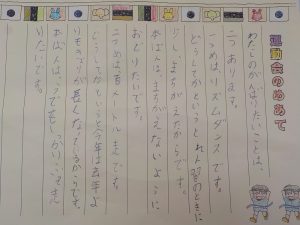 運動会のめあて
わたしのがんばりたいことは、
二つあります。
一つめはリズムダンスです。
どうしてかというと、れん習のときに
少しまちがえたからです。
本ばんは、まちがえないように
おどりたいです。
二つめは、メートル走です。
どうしてかというと、今年は去年よ
りもきょりが長くなっているからです。
本ばんは、うでをしっかり
りたいです。